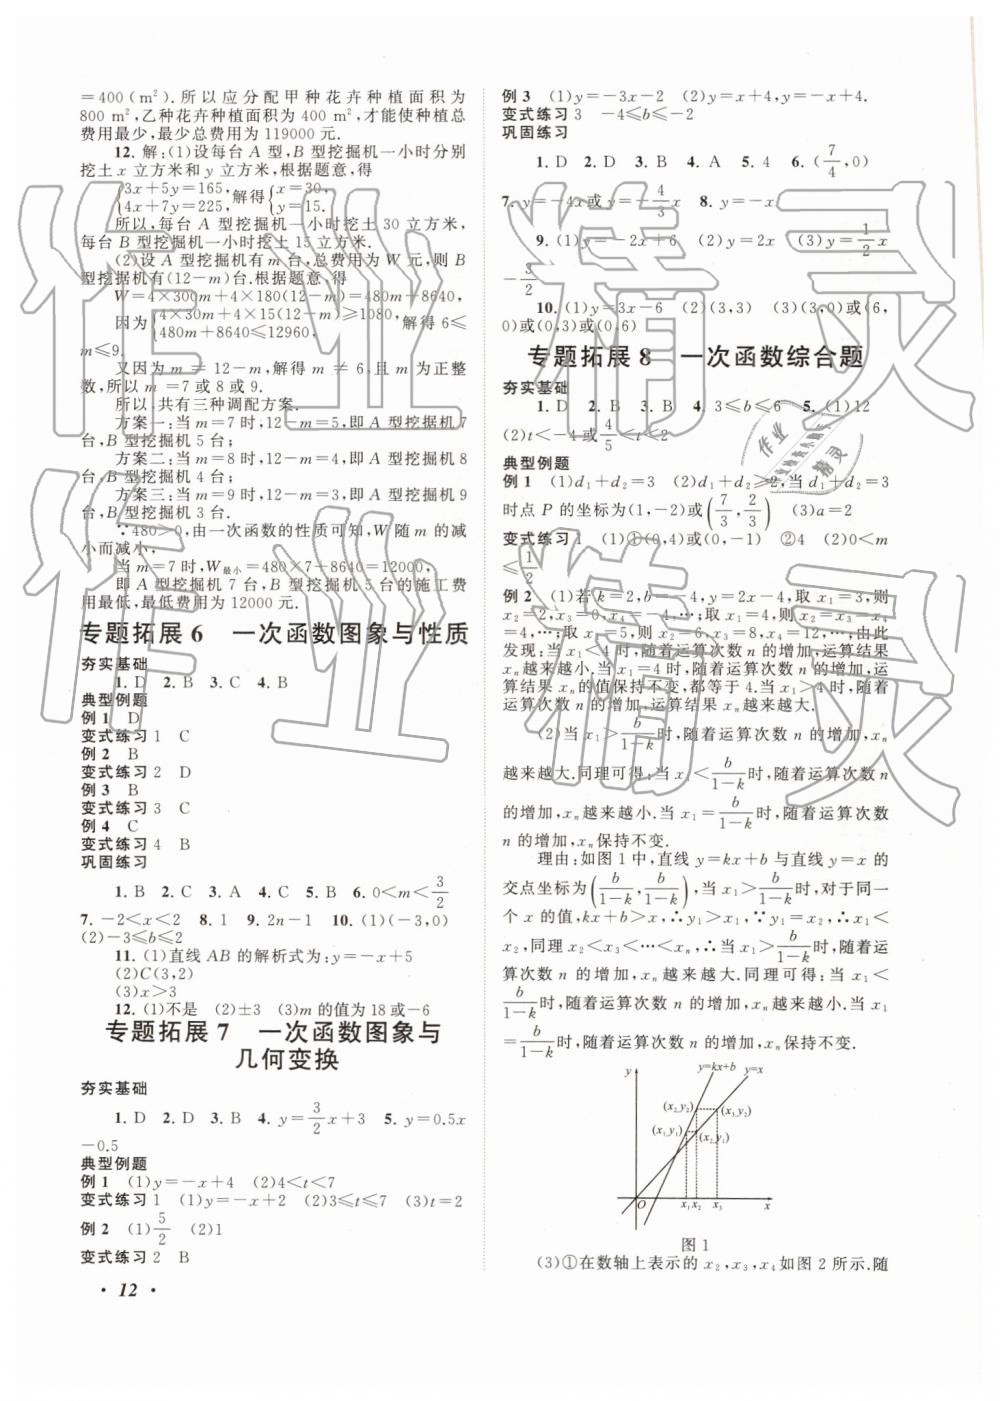 =400(m²).所以应分配甲种花卉种植面积为
800 m²,乙种花卉种植面积为 400 m²,才能使种植总
费用最少,最少总费用为 119000 元.
12. 解:(1)设每台 A 型,B 型挖掘机一小时分别
挖土 x 立方米和 y 立方米,根据题意,得
{3x+5y=165, 4x+7y=225, 解得{x=30, y=15.
所以,每台 A 型挖掘机一小时挖土 30 立方米,
每台 B 型挖掘机一小时挖土 15 立方米.
(2)设 A 型挖掘机有 m 台,总费用为 W 元,则 B
型挖掘机有(12-m)台.根据题意,得
W=4×300m+4×180(12-m)=480m+8640,
因为{4×30m+4×15(12-m)≥1080, 480m+8640≤12960, 解得 6≤
m≤9.
又因为 m≠12-m,解得 m≠6,且 m 为正整
数,所以 m=7 或 8 或 9.
所以,共有三种调配方案.
方案一:当 m=7 时,12-m=5,即 A 型挖掘机 7
台,B 型挖掘机 5 台;
方案二:当 m=8 时,12-m=4,即 A 型挖掘机 8
台,B 型挖掘机 4 台;
方案三:当 m=9 时,12-m=3,即 A 型挖掘机 9
台,B 型挖掘机 3 台.
∵480>0,由一次函数的性质可知,W 随 m 的减
小而减小,
当 m=7 时,W最小=480×7+8640=12000,
即 A 型挖掘机 7 台,B 型挖掘机 5 台的施工费
用最低,最低费用为 12000 元.
专题拓展 6 一次函数图象与性质
夯实基础
1. D 2. B 3. C 4. B
典型例题
例 1 D
变式练习 1 C
例 2 B
变式练习 2 D
例 3 B
变式练习 3 C
例 4 C
变式练习 4 B
巩固练习
1. B 2. C 3. A 4. C 5. B 6. 0<m<3/2
7. -2<x<2 8. 1 9. 2n-1 10. (1)(-3,0)
(2)-3≤b≤2
11. (1)直线 AB 的解析式为:y=-x+5
(2)C(3,2)
(3)x>3
12. (1)不是 (2)±3 (3)m 的值为 18 或-6
专题拓展 7 一次函数图象与
几何变换
夯实基础
1. D 2. D 3. B 4. y=3/2x+3 5. y=0.5x
-0.5
典型例题
例 1 (1)y=-x+4 (2)4<t<7
变式练习 1 (1)y=-x+2 (2)3≤t≤7 (3)t=2
例 2 (1)5/2 (2)1
变式练习 2 B
· 12 ·
例 3 (1)y=-3x-2 (2)y=x+4,y=-x+4.
变式练习 3 -4≤b≤-2
巩固练习
1. D 2. D 3. B 4. A 5. 4 6. (7/4,0)
7. y=-4x或 y=-4/3x 8. y=-x
9. (1)y=-2x+6 (2)y=2x (3)y=1/2x
-3/2
10. (1)y=3x-6 (2)(3,3) (3)(3,0)或(6,
0)或(0,3)或(0,6)
专题拓展 8 一次函数综合题
夯实基础
1. D 2. B 3. B 4. 3≤b≤6 5. (1)12
(2)t<-4 或 4/5<t<2
典型例题
例 1 (1)d₁+d₂=3 (2)d₁+d₂≥2,当 d₁+d₂=3
时点 P 的坐标为(1,-2)或(7/3,2/3) (3)a=2
变式练习 1 (1)①(0,4)或(0,-1) ②4 (2)0<m
≤1/2
例 2 (1)若 k=2,b=-4,y=2x-4,取 x₁=3,则
x₂=2,x₃=0,x₄=-4,…;取 x₁=4,则 x₂=x₃=x₄
=4,…;取 x₁=5,则 x₂=6,x₃=8,x₄=12,…;由此
发现:当 x₁<4 时,随着运算次数 n 的增加,运算结果
xₙ越来越小.当 x₁=4 时,随着运算次数 n 的增加,运
算结果 xₙ的值保持不变,都等于 4.当 x₁>4 时,随着
运算次数 n 的增加,运算结果 xₙ越来越大.
(2)当 x₁>b/1-k时,随着运算次数 n 的增加,xₙ
越来越大.同理可得:当 x₁<b/1-k时,随着运算次数 n
的增加,xₙ越来越小.当 x₁=b/1-k时,随着运算次数
n 的增加,xₙ保持不变.
理由:如图 1 中,直线 y=kx+b 与直线 y=x 的
交点坐标为(b/1-k,b/1-k),当 x₁>b/1-k时,对于同一
个 x 的值,kx+b>x,∴y₁>x₁,∵y₁=x₂,∴x₁<
x₂,同理 x₂<x₃<…<xₙ,∴当 x₁>b/1-k时,随着运
算次数 n 的增加,xₙ越来越大.同理可得:当 x₁<
b/1-k时,随着运算次数 n 的增加,xₙ越来越小.当 x₁
=b/1-k时,随着运算次数 n 的增加,xₙ保持不变.
y y=kx+b y=x
(x₂,y₂) (x₃,y₂)
(x₁,y₁) (x₂,y₁)
O x₁ x₂ x₃ x
图 1
(3)①在数轴上表示的 x₂,x₃,x₄如图 2 所示.随
作业精灵
作业精灵
作业
精灵